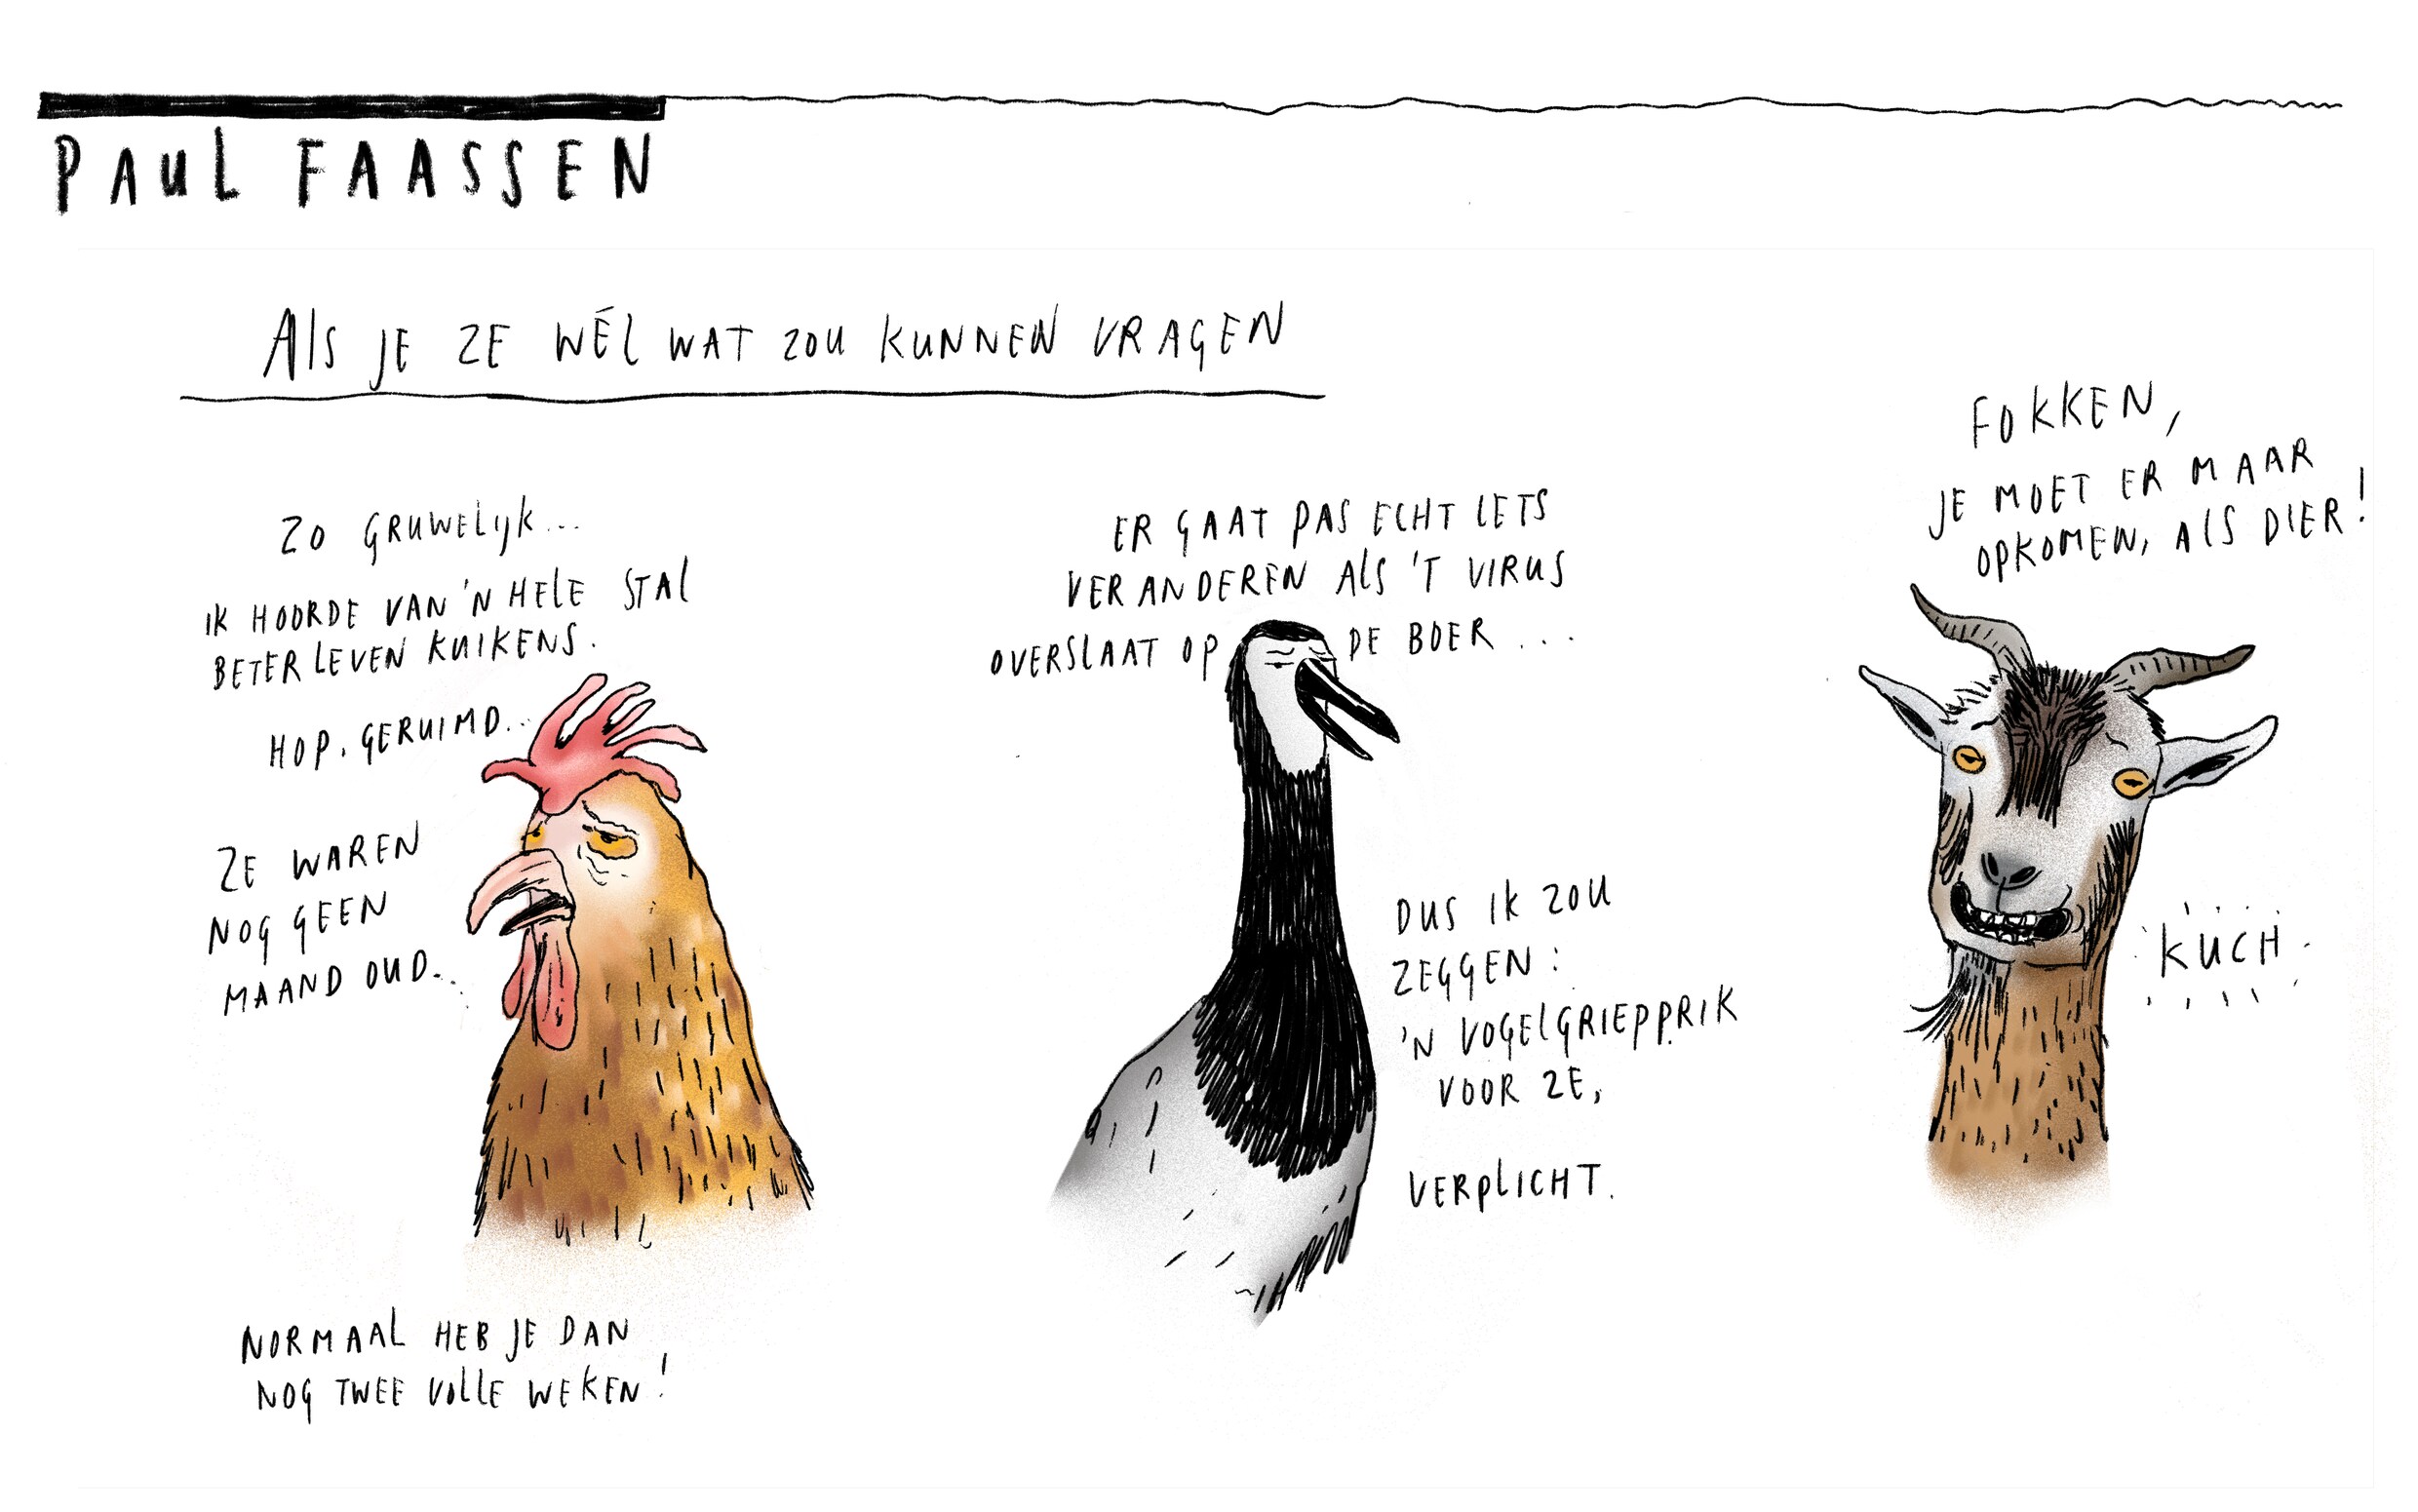 PAUL FAASSEN
AlS JE ZE WÉL WAT ZOU KUNNEN VRAGEN
ZO GRUWELIJK...
IK HOORDE VAN 'N HELE STAL
BETER LEVEN KUIKENS.
HOP. GERUIMD..
ZE WAREN
NOG GEEN
MAAND OUD...
NORMAAL HEB JE DAN
NOG TWEE VOLLE WEKEN!
ER GAAT PAS ECHT IETS
VERANDEREN ALS 'T VIRUS
OVERSLAAT OP DE BOER ...
DUS IK ZOU
ZEGGEN:
'N VOGELGRIEPPRIK
VOOR ZE,
VERPLICHT.
FOKKEN,
JE MOET ER MAAR
OPKOMEN, ALS DIER!
KUCH